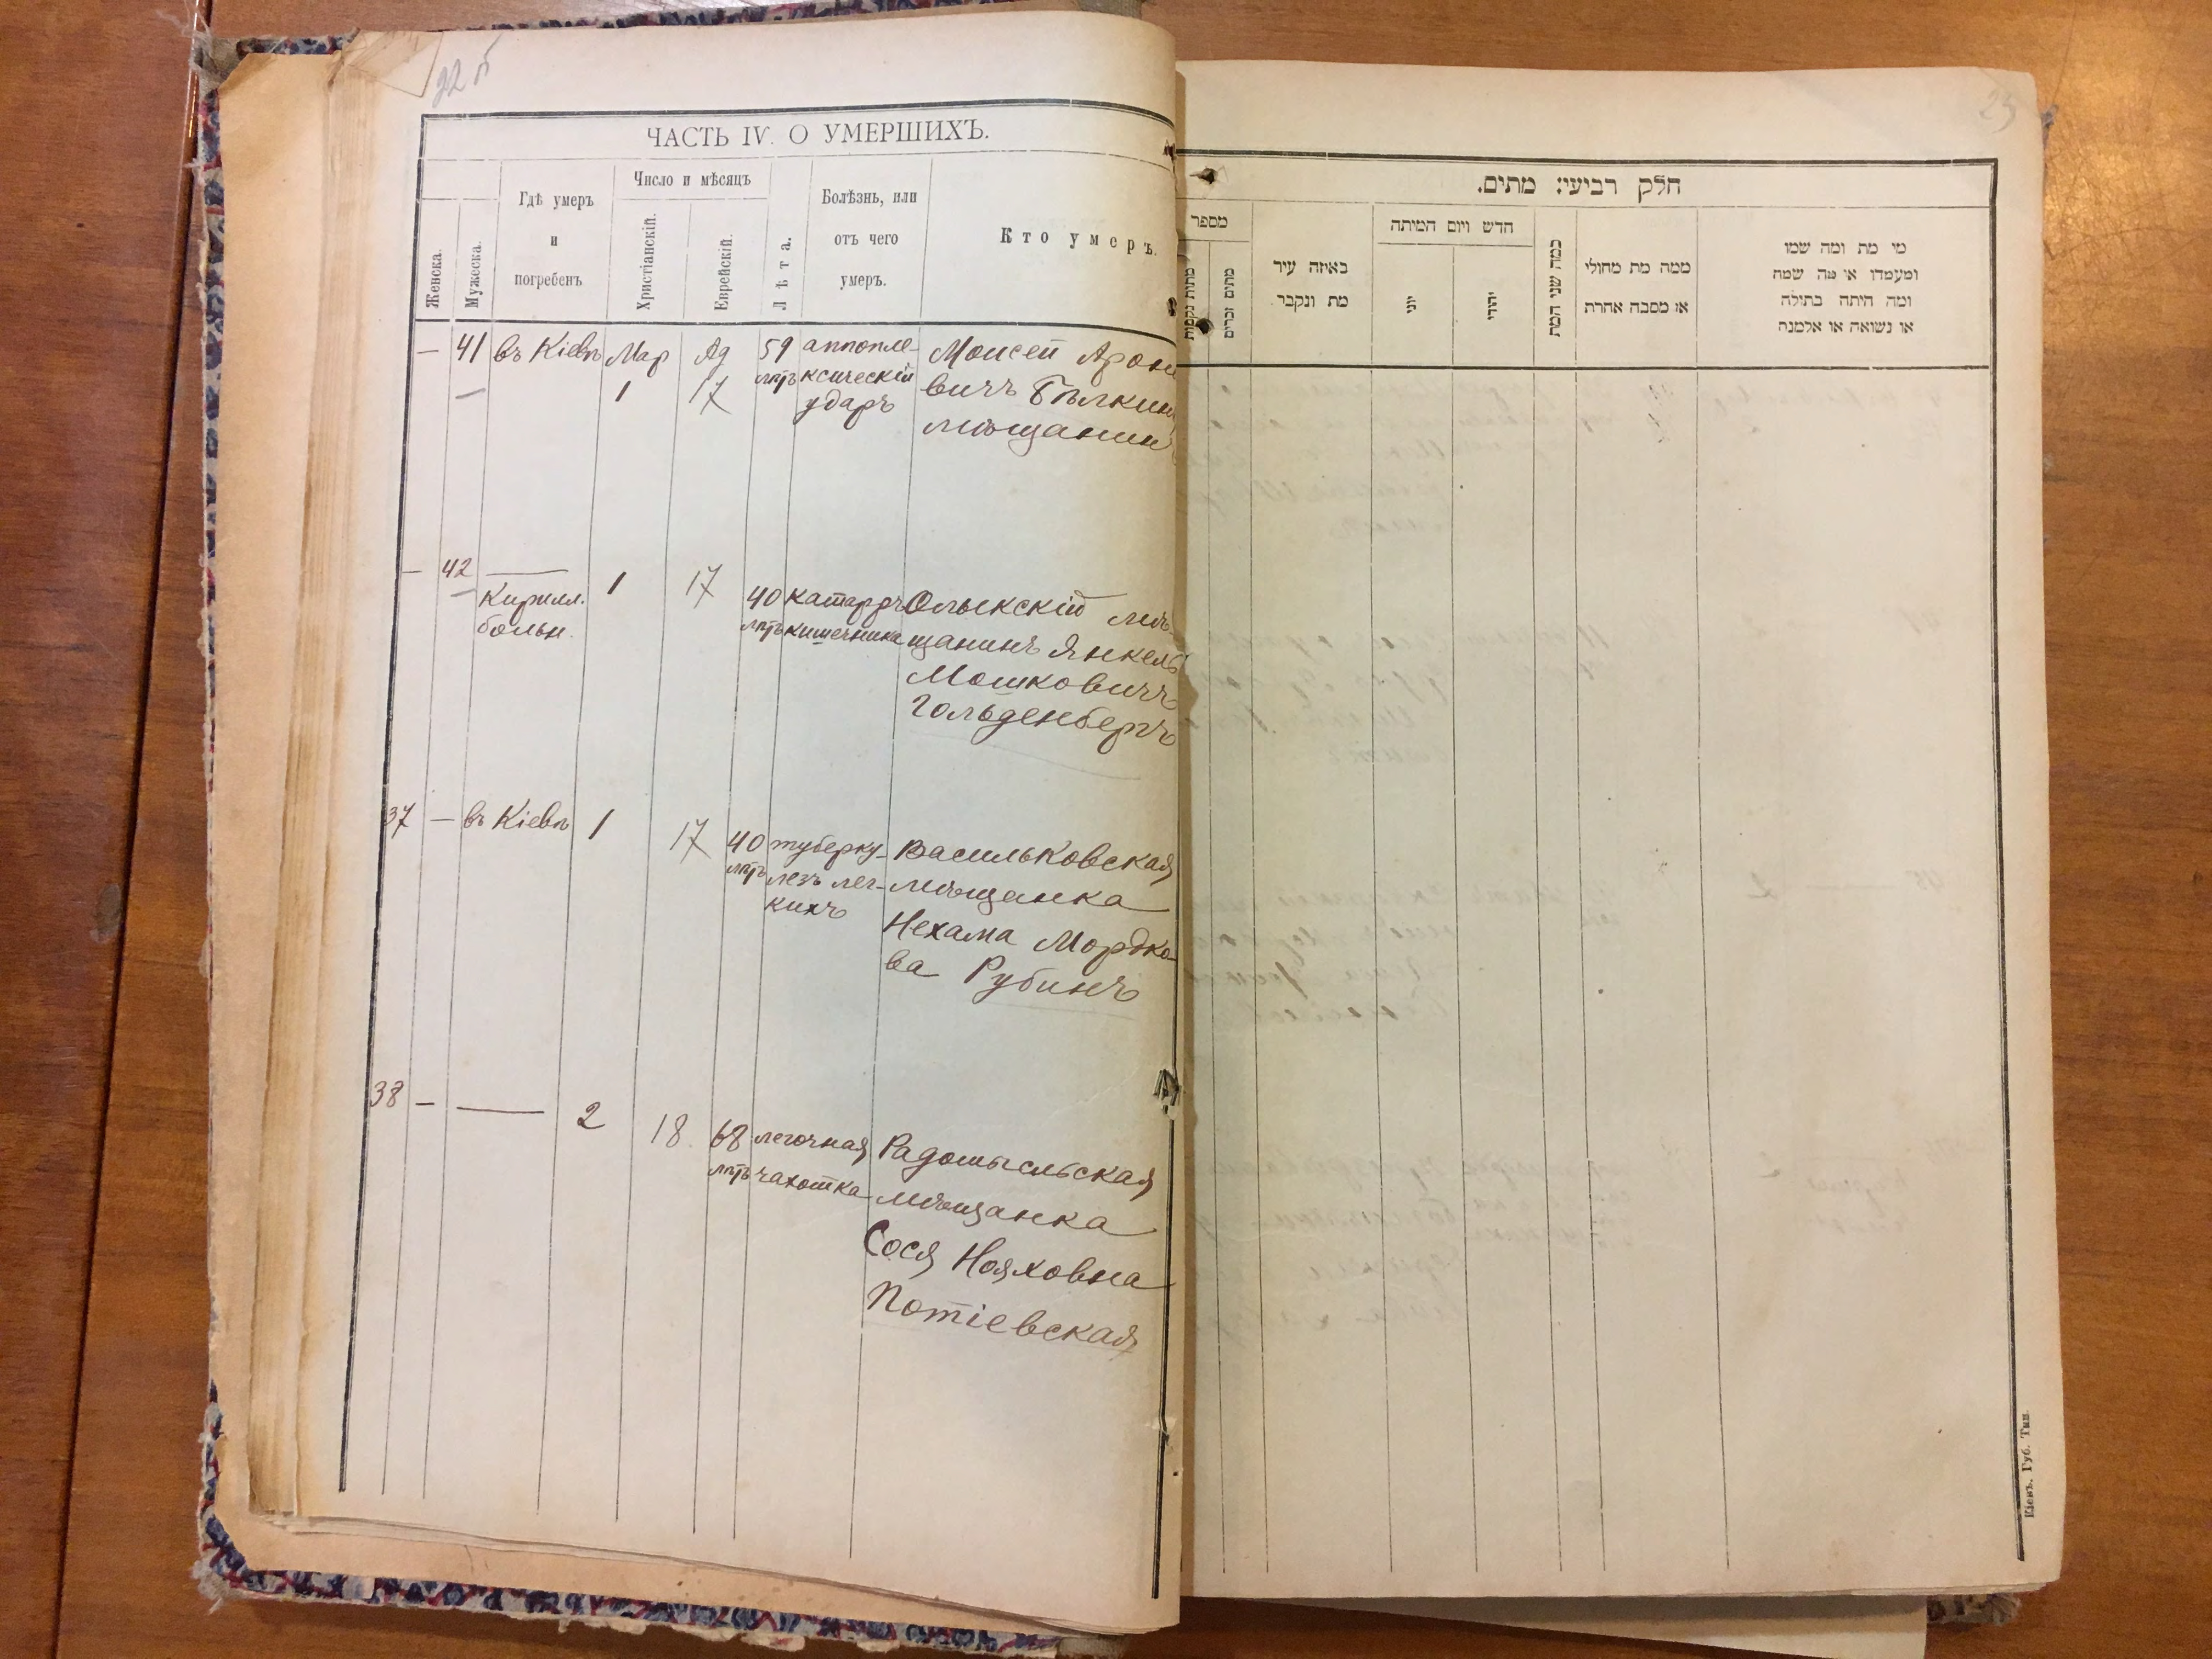 22 б
ЧАСТЬ IV. О УМЕРШИХЪ.
Женска.
Мужеска.
Гдѣ умеръ
и
погребенъ
Число и мѣсяцъ
Христіанскій.
Еврейскій.
Лѣта.
Болѣзнь, или
отъ чего
умеръ.
Кто умеръ.
— 41 въ Кіевѣ Мар Ад 59 аппопле- Моисей Арон
— 1 17 лѣтъ ксическій вичъ Бѣлкин
ударъ мѣщанин
— 42 —— 1 17 40 катарръ Олыкскій мѣ-
— Кирилл. лѣтъ кишечника щанинъ Янкель
больн. Мошковичъ
Гольденбергъ
37 — въ Кіевѣ 1 17 40 туберку- Васильковская
лѣтъ лезъ лег- мѣщанка
кихъ Нехама Мордко-
ва Рубинъ
38 — —— 2 18 68 легочная Радомысльская
лѣтъ чахотка мѣщанка
Сося Нояховна
Потіевская
23
חלק רביעי: מתים.
מספר
מתות נקבות
מתים זכרים
באיזה עיר
מת ונקבר
חדש ויום המיתה
יוני
יהודי
כמה שני המת
ממה מת מחולי
או מסבה אחרת
מי מת ומה שמו
ומעמדו או מה שמה
ומה היתה בתולה
או נשואה או אלמנה
Кіевъ. Губ. Тип.